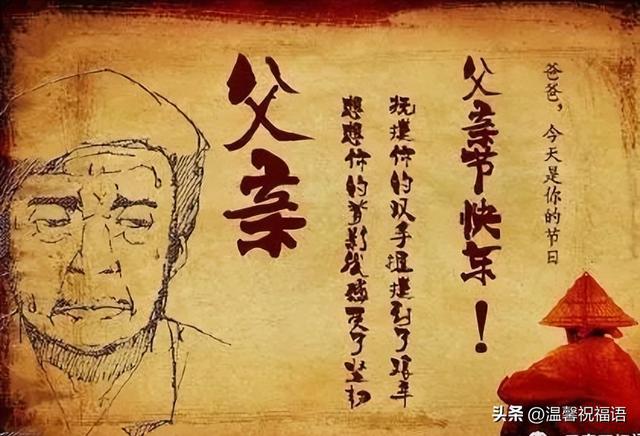 爸爸，今天是你的节日
父亲节快乐！
抚摸你的双手我摸到了艰辛
想想你的背影我感受了坚韧
父亲
头条 @温馨祝福语